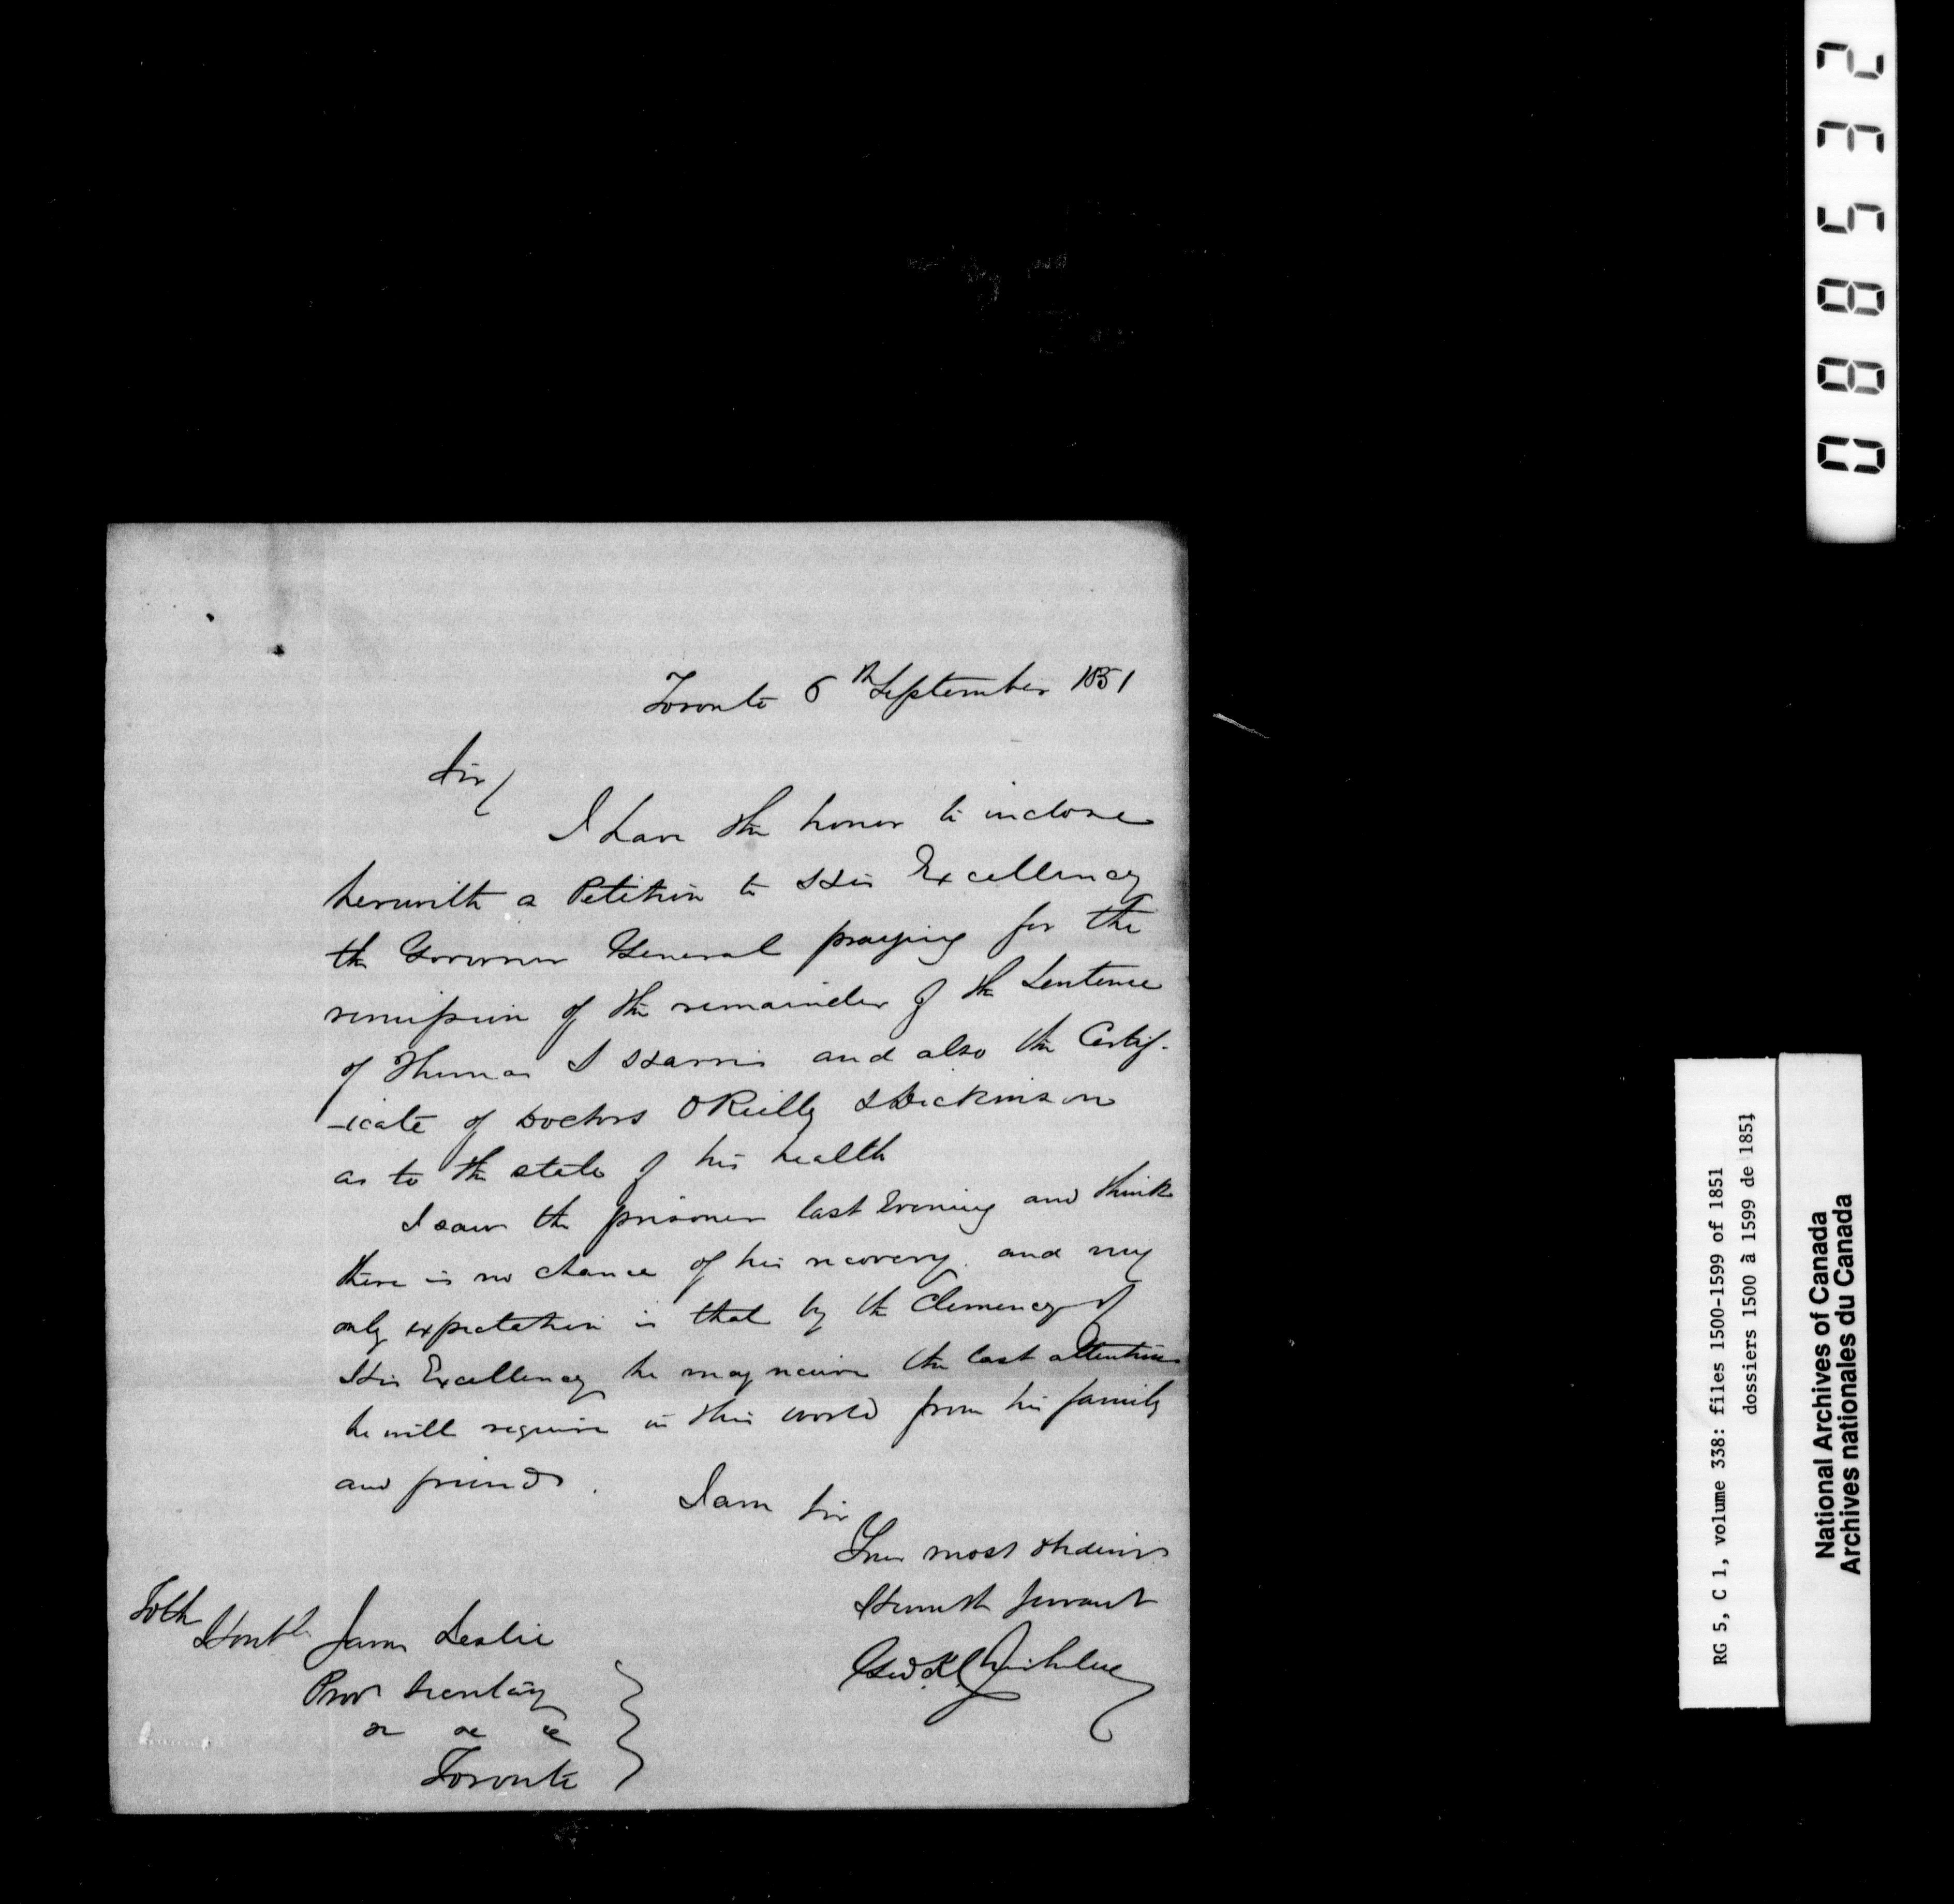 Toronto 6th September 1851
Sir
I have the honor to inclose
herewith a Petition to His Excellency
the Governor General praying for the
remission of the remainder of the Sentence
of Thomas I Harris and also the Certif-
-icate of Doctors OReilly & Dickinson
as to the state of his health
I saw the prisoner last Evening and think
there is no chance of his recovery. and my
only expectation is that by the Clemency of
His Excellency he may receive the last attentions
he will require in this world from his family
and friends.
I am Sir
Your most obedient
Humble Servant
To the
Honble James Leslie
Prov Secretary
&c &c &c
Toronto
088532
RG 5, C 1, volume 338: files 1500-1599 of 1851
dossiers 1500 à 1599 de 1851
National Archives of Canada
Archives nationales du Canada